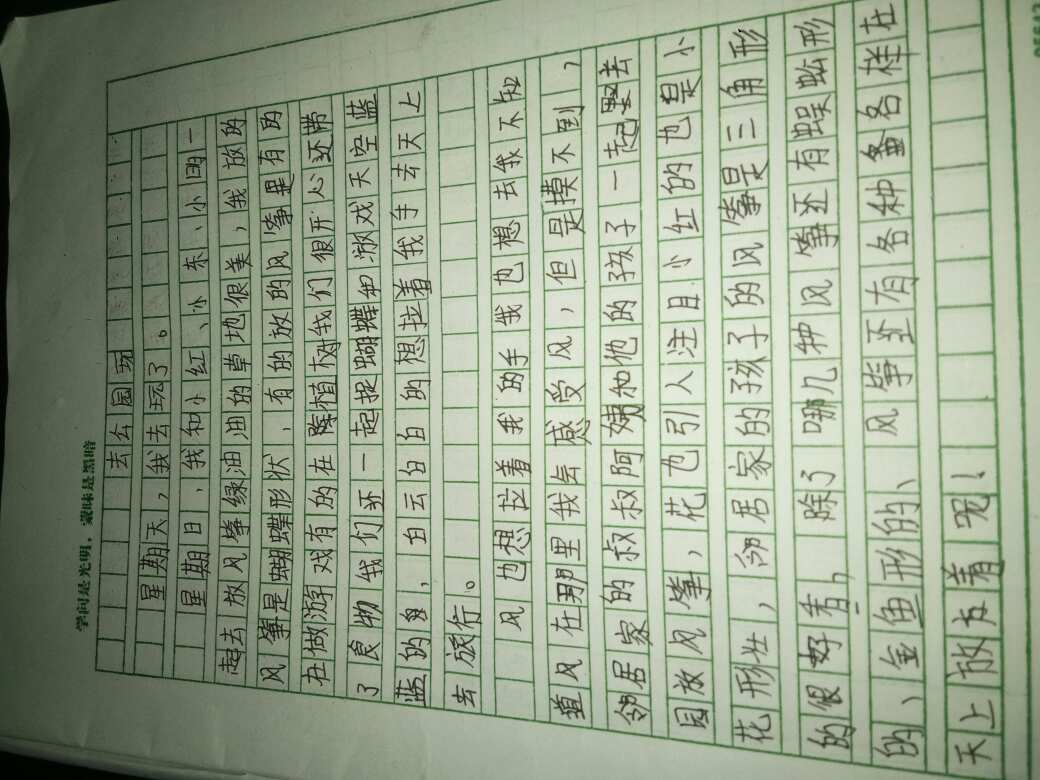 学问是光明，蒙昧是黑暗
去公园玩
星期天，我去玩了。
星期日，我和小红、小东、小明一
起去放风筝绿油油的草地很美，我放的
风筝是蝴蝶形状，有的放的风筝是有的
在做游戏有的在植树我们很开心还带
了食物我们还一起捉蝴蝶和游戏天空蓝
蓝的，白云白白的想拉着我手去天上
去旅行。
风也想拉着我的手我也想去我不知
道风在那里我会感受风，但是摸不到，
邻居家的叔叔阿姨和他的孩子一起去
园放风筝，花也引人注目小红的也是小
花形状，邻居家的孩子的风筝是三角形
的很好看，除了哪几种风筝还有蜈蚣形
的、金鱼形的、风筝至有各种各样在
天上放着呢！